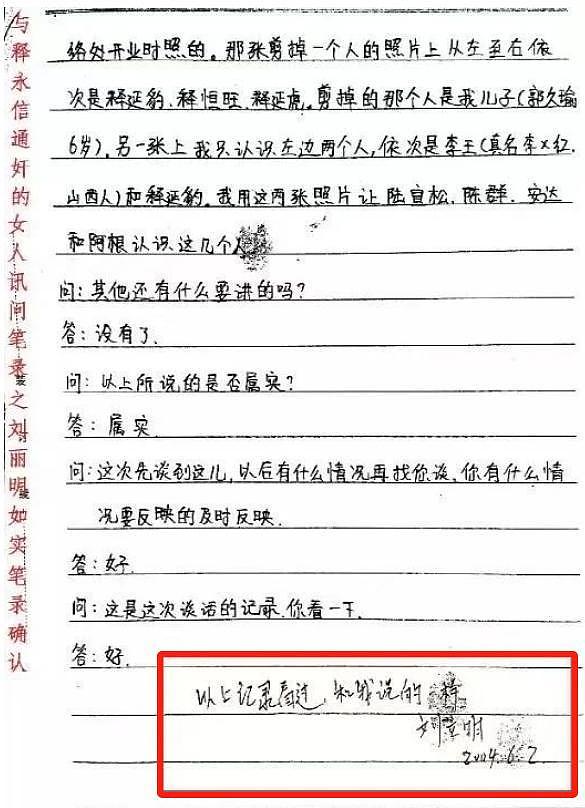 与释永信通奸的女人讯问笔录之刘丽明如实笔录确认
络处开业时照的。那张剪掉一个人的照片上从左至右依
次是释延豹、释恒旺、释延虎。剪掉的那个人是我儿子(郭久瑜
6岁)。另一张上我只认识左边两个人,依次是李王(真名李X红,
山西人)和释延豹。我用这两张照片让陆宜松、陈群、安达
和阿根认识这几个人
问:其他还有什么要讲的吗?
答:没有了.
问:以上所说的是否属实?
答:属实
问:这次先谈到这儿,以后有什么情况再找你谈,你有什么情
况要反映的及时反映.
答:好.
问:这是这次谈话的记录.你看一下.
答:好.
以上记录看过,和我说的一样
刘 明
2004.6.2